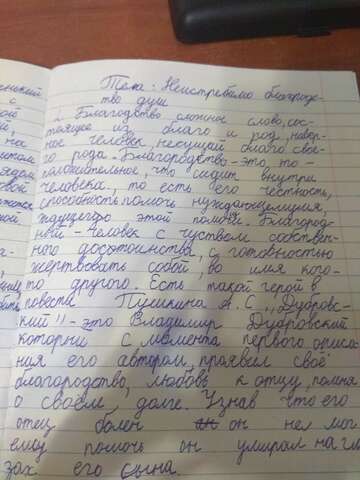 Тема: Неистребимо благородс-
тво душ
Благодство сложное слово, сос-
тоящее из благо и род, навер-
ное человек, несущий благо свое-
го рода. Благородство-это, то-
положительное, что сидит внутри
человека, то есть его честность,
способность помочь нуждающемуся,
ждущего этой помощи. Благород-
ный - человек с чуством собствен-
ного достоинства, с готовностью
жертвовать собой, во имя кого-
то другого. Есть такой герой в
повести Пушкина А.С. „Дубровс-
кий" - это Владимир Дубровский
который с момента первого описа-
ния его автором, проявил своё
благородство, любовь к отцу, помня
о своём долге. Узнав что его
отец болен он нел мог
ему помочь он умирал на гла
зах его сына.